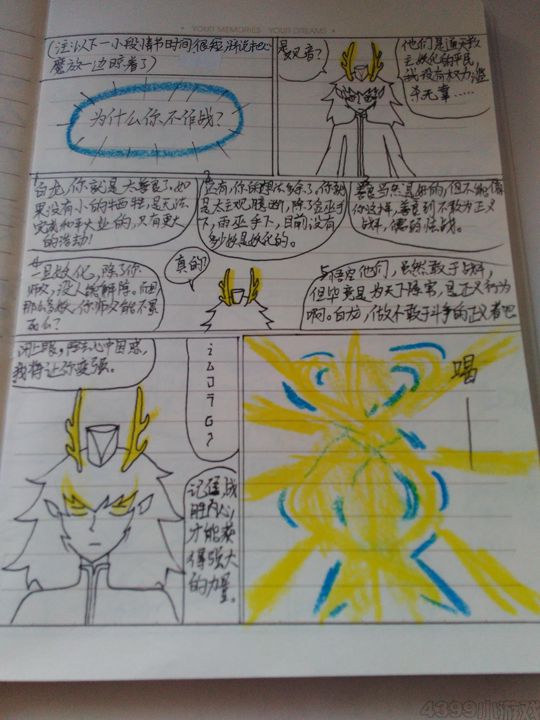 YOUR MEMORIES YOUR DREAMS
(注:以下一小段情节时间很短,所说
魔放一边晾着了)
为什么你不作战?
是观音?
他们是通天教
主妖化的平民
我没有权力滥
杀无辜……
白龙,你就是太善良了,如
果没有小的牺牲,是无法
完成和平大业的,只有更大
的
还有,你的想法多余了,你就
是太主观臆断,除了金巫手
下,雨巫手下,目前没有
妖是妖化的。
善良当然是好的,但不能像
你这样,善良到不敢为正义
战斗,懦的怯战。
一旦妖化,除了你
师父,没人能解除。而且
那么多妖,你师父能不累
死么?
真的?
悟空他们,虽然敢于战斗,
但毕竟是为天下除害,是正义行为
啊。白龙,做不敢于斗争的正义者吧
闭上眼,除去心中困惑,
我将让你变强。
记住战
胜内心
才能获
得强大
的力量。
喝
4399小游戏